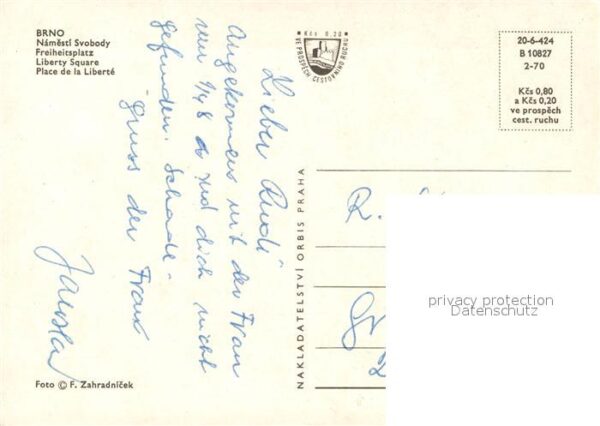 BRNO
Náměstí Svobody
Freiheitsplatz
Liberty Square
Place de la Liberté
Kčs 0.20
VE PROSPĚCH CESTOVNÍHO RUCHU
20-6-424
B 10827
2-70
Kčs 0,80
a Kčs 0,20
ve prospěch
cest. ruchu
Lieber Rudi
Angekommen mit der Frau
um und dich nicht
gefunden. Schade -
Gruss der Frau
NAKLADATELSTVÍ ORBIS PRAHA
R.
privacy protection
Datenschutz
Foto © F. Zahradníček